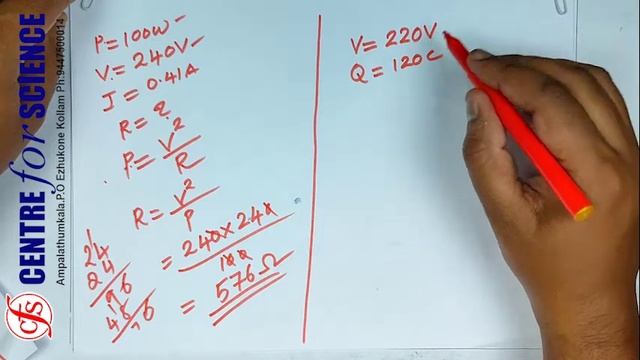 CENTRE for SCIENCE
Ampalathumkala.P.O Ezhukone Kollam Ph:9447500014
cfs
P = 100W
V = 240V
I = 0.41A
R = ?
P = V²/R
R = V²/P
= 240 x 240/100
= 576 Ω
24
24
96
48
576
V = 220V
Q = 120C